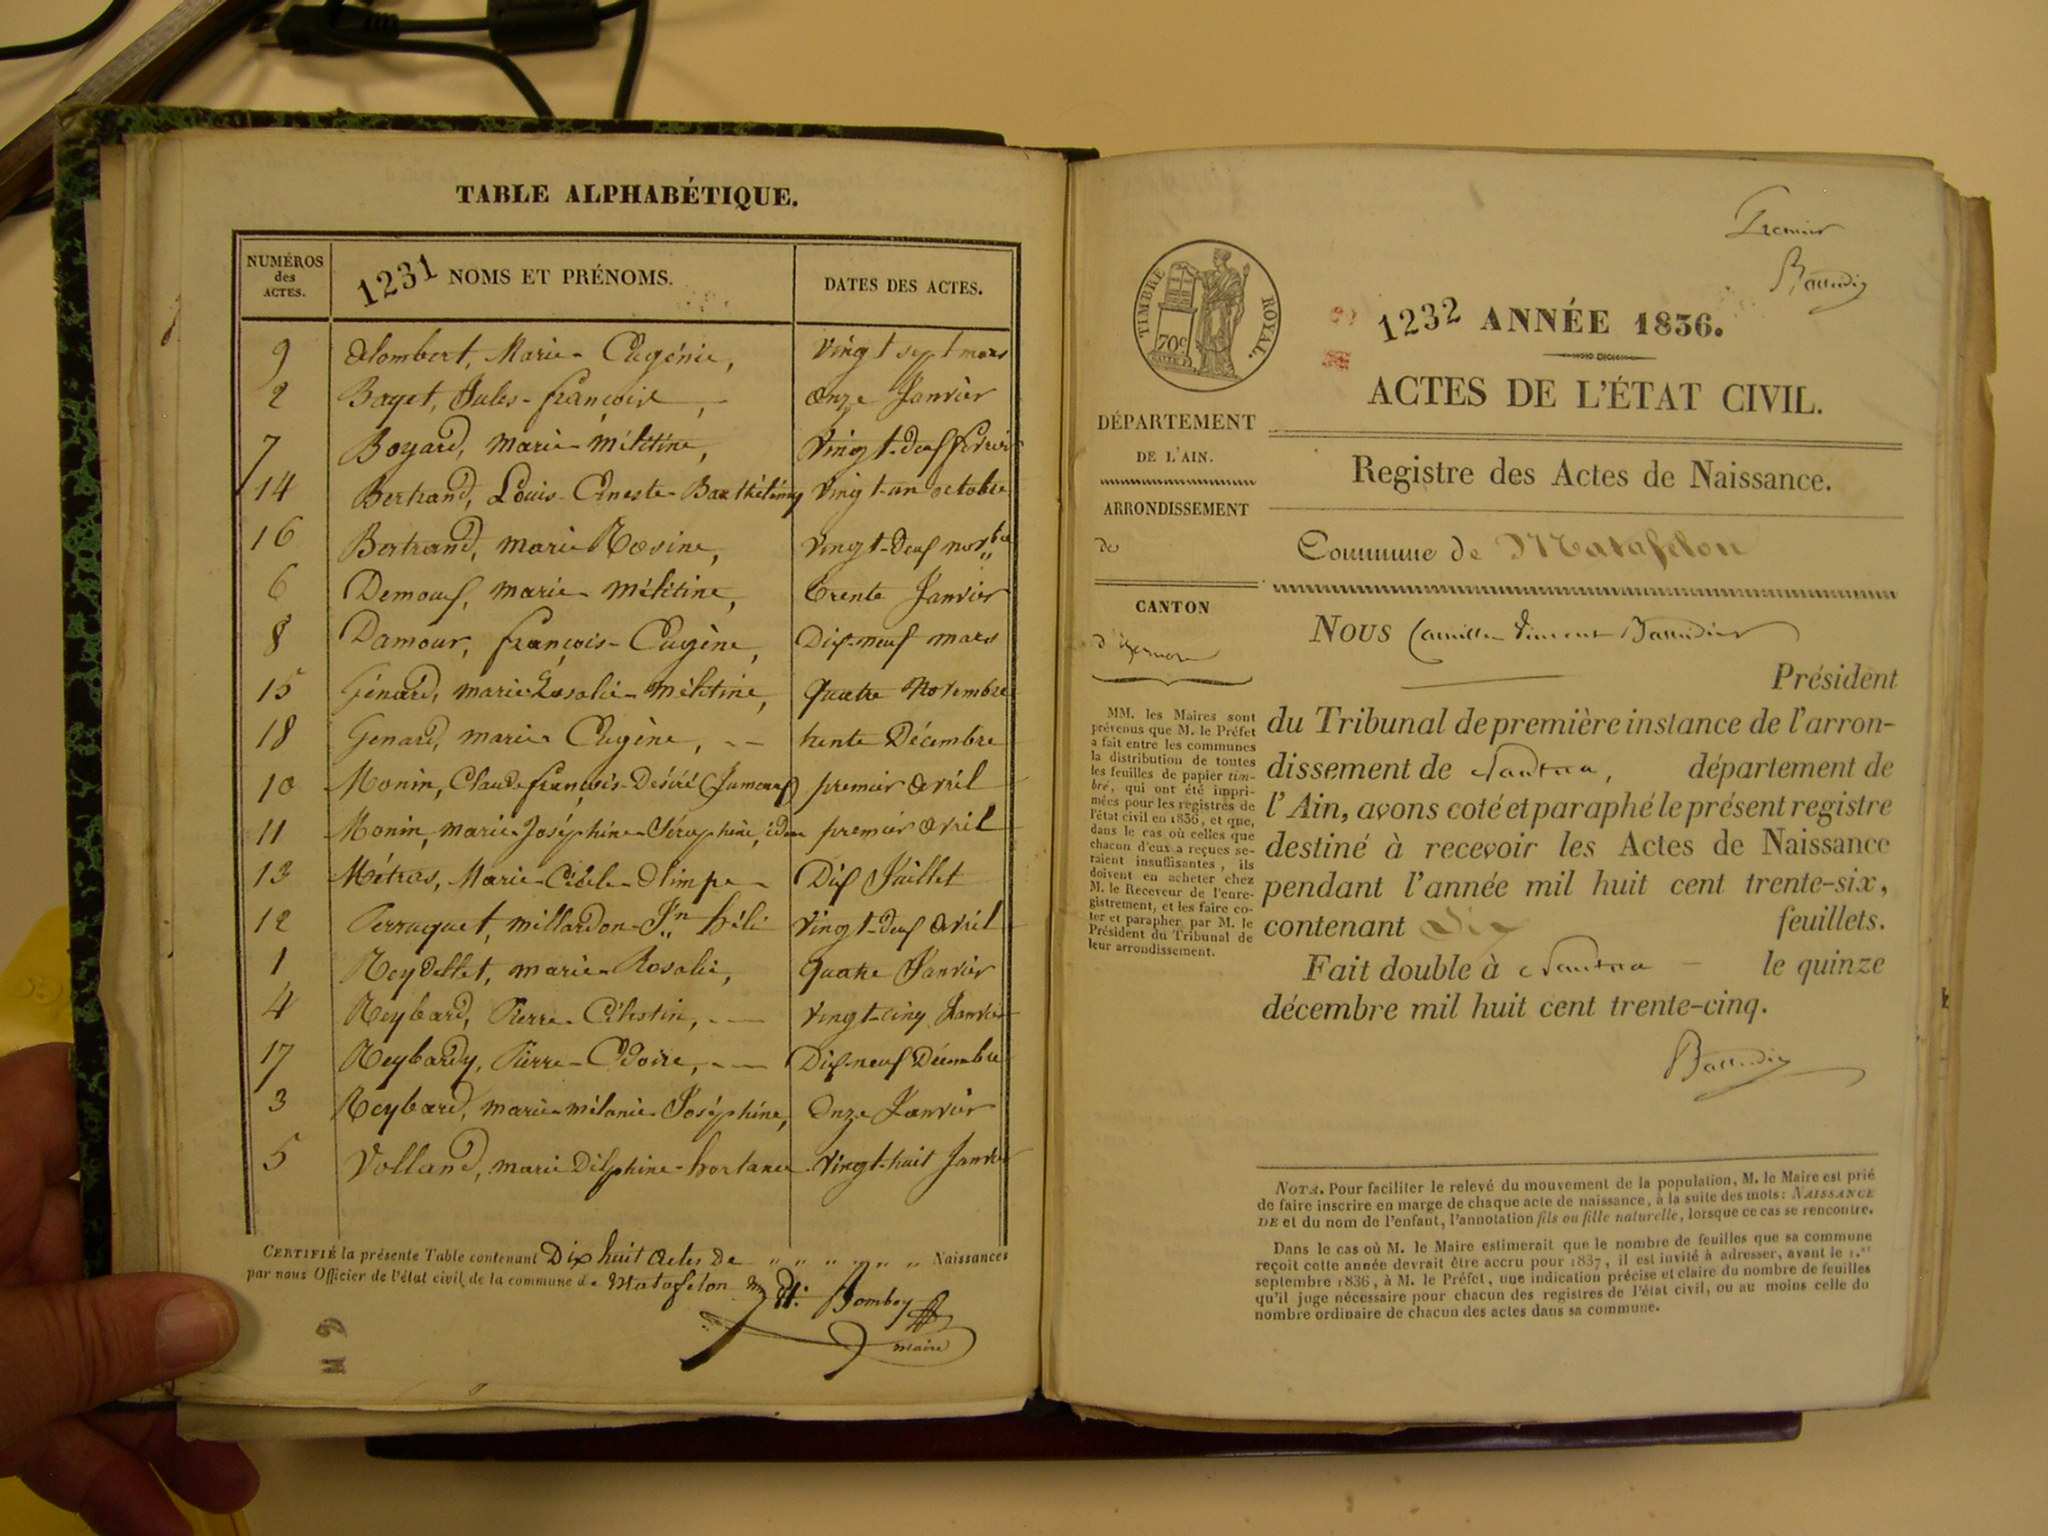 TABLE ALPHABÉTIQUE.
NUMÉROS des ACTES.
1231 NOMS ET PRÉNOMS.
DATES DES ACTES.
9 Alombert, Marie-Eugénie, Vingt sept mars
2 Bayet, Jules-françois, Onze Janvier
7 Boyard, marie-mélitine, Vingt-deux fevrier
14 Bertrand, Louis-Erneste-Barthélémy Vingt-un octobre
16 Bertrand, marie Rosine, Vingt-deux novbre
6 marie-mélitine, trente Janvier
8 Damour, françois-Eugène, Dix-neuf mars
15 Génard, marie Rosalie-mélitine, Quatre Novembre
18 Génard, marie Eugène, trente Décembre
10 Monin, Claude françois-Désiré (Jumeaux) premier avril
11 Monin, marie-Joséphine-Séraphine, idem premier avril
13 Métras, Marie-Cécile-Olimpe Dix Juillet
12 Perraquet, millardon-Jn héli Vingt-deux avril
1 Reydellet, marie-Rosalie, Quatre Janvier
4 Reybard, Pierre-Célestin, Vingt-cinq Janvier
17 Reybard, Pierre-Edoire, Dix-neuf Décembre
3 Reybard, marie-mélanie-Joséphine, Onze Janvier
5 Volland, marie Delphine-hortance Vingt-huit Janvier
CERTIFIÉ la présente Table contenant Dix huit actes de Naissances
par nous Officier de l'état civil de la commune de Matafelon
Bomboy
maire
Premier
Baudin
TIMBRE ROYAL.
70c
1232 ANNÉE 1836.
ACTES DE L'ÉTAT CIVIL.
DÉPARTEMENT
DE L'AIN.
ARRONDISSEMENT
de
CANTON
d'izernore
MM. les Maires sont
prévenus que M. le Préfet
a fait entre les communes
la distribution de toutes
les feuilles de papier tim-
bré, qui ont été impri-
mées pour les registres de
l'état civil en 1836, et que,
dans le cas où celles que
chacun d'eux a reçues se-
raient insuffisantes, ils
doivent en acheter chez
M. le Receveur de l'enre-
gistrement, et les faire co-
ter et parapher par M. le
Président du Tribunal de
leur arrondissement.
Registre des Actes de Naissance.
Commune de Matafelon
NOUS Camille Vincent
Président
du Tribunal de première instance de l'arron-
dissement de Nantua, département de
l'Ain, avons coté et paraphé le présent registre
destiné à recevoir les Actes de Naissance
pendant l'année mil huit cent trente-six,
contenant dix feuillets.
Fait double à Nantua — le quinze
décembre mil huit cent trente-cinq.
Baudin
NOTA. Pour faciliter le relevé du mouvement de la population, M. le Maire est prié
de faire inscrire en marge de chaque acte de naissance, à la suite des mots: NAISSANCE
DE et du nom de l'enfant, l'annotation fils ou fille naturelle, lorsque ce cas se rencontre.
Dans le cas où M. le Maire estimerait que le nombre de feuilles que sa commune
reçoit cette année devrait être accru pour 1837, il est invité à adresser, avant le 1.er
septembre 1836, à M. le Préfet, une indication précise et claire du nombre de feuilles
qu'il juge nécessaire pour chacun des registres de l'état civil, ou au moins celle du
nombre ordinaire de chacun des actes dans sa commune.